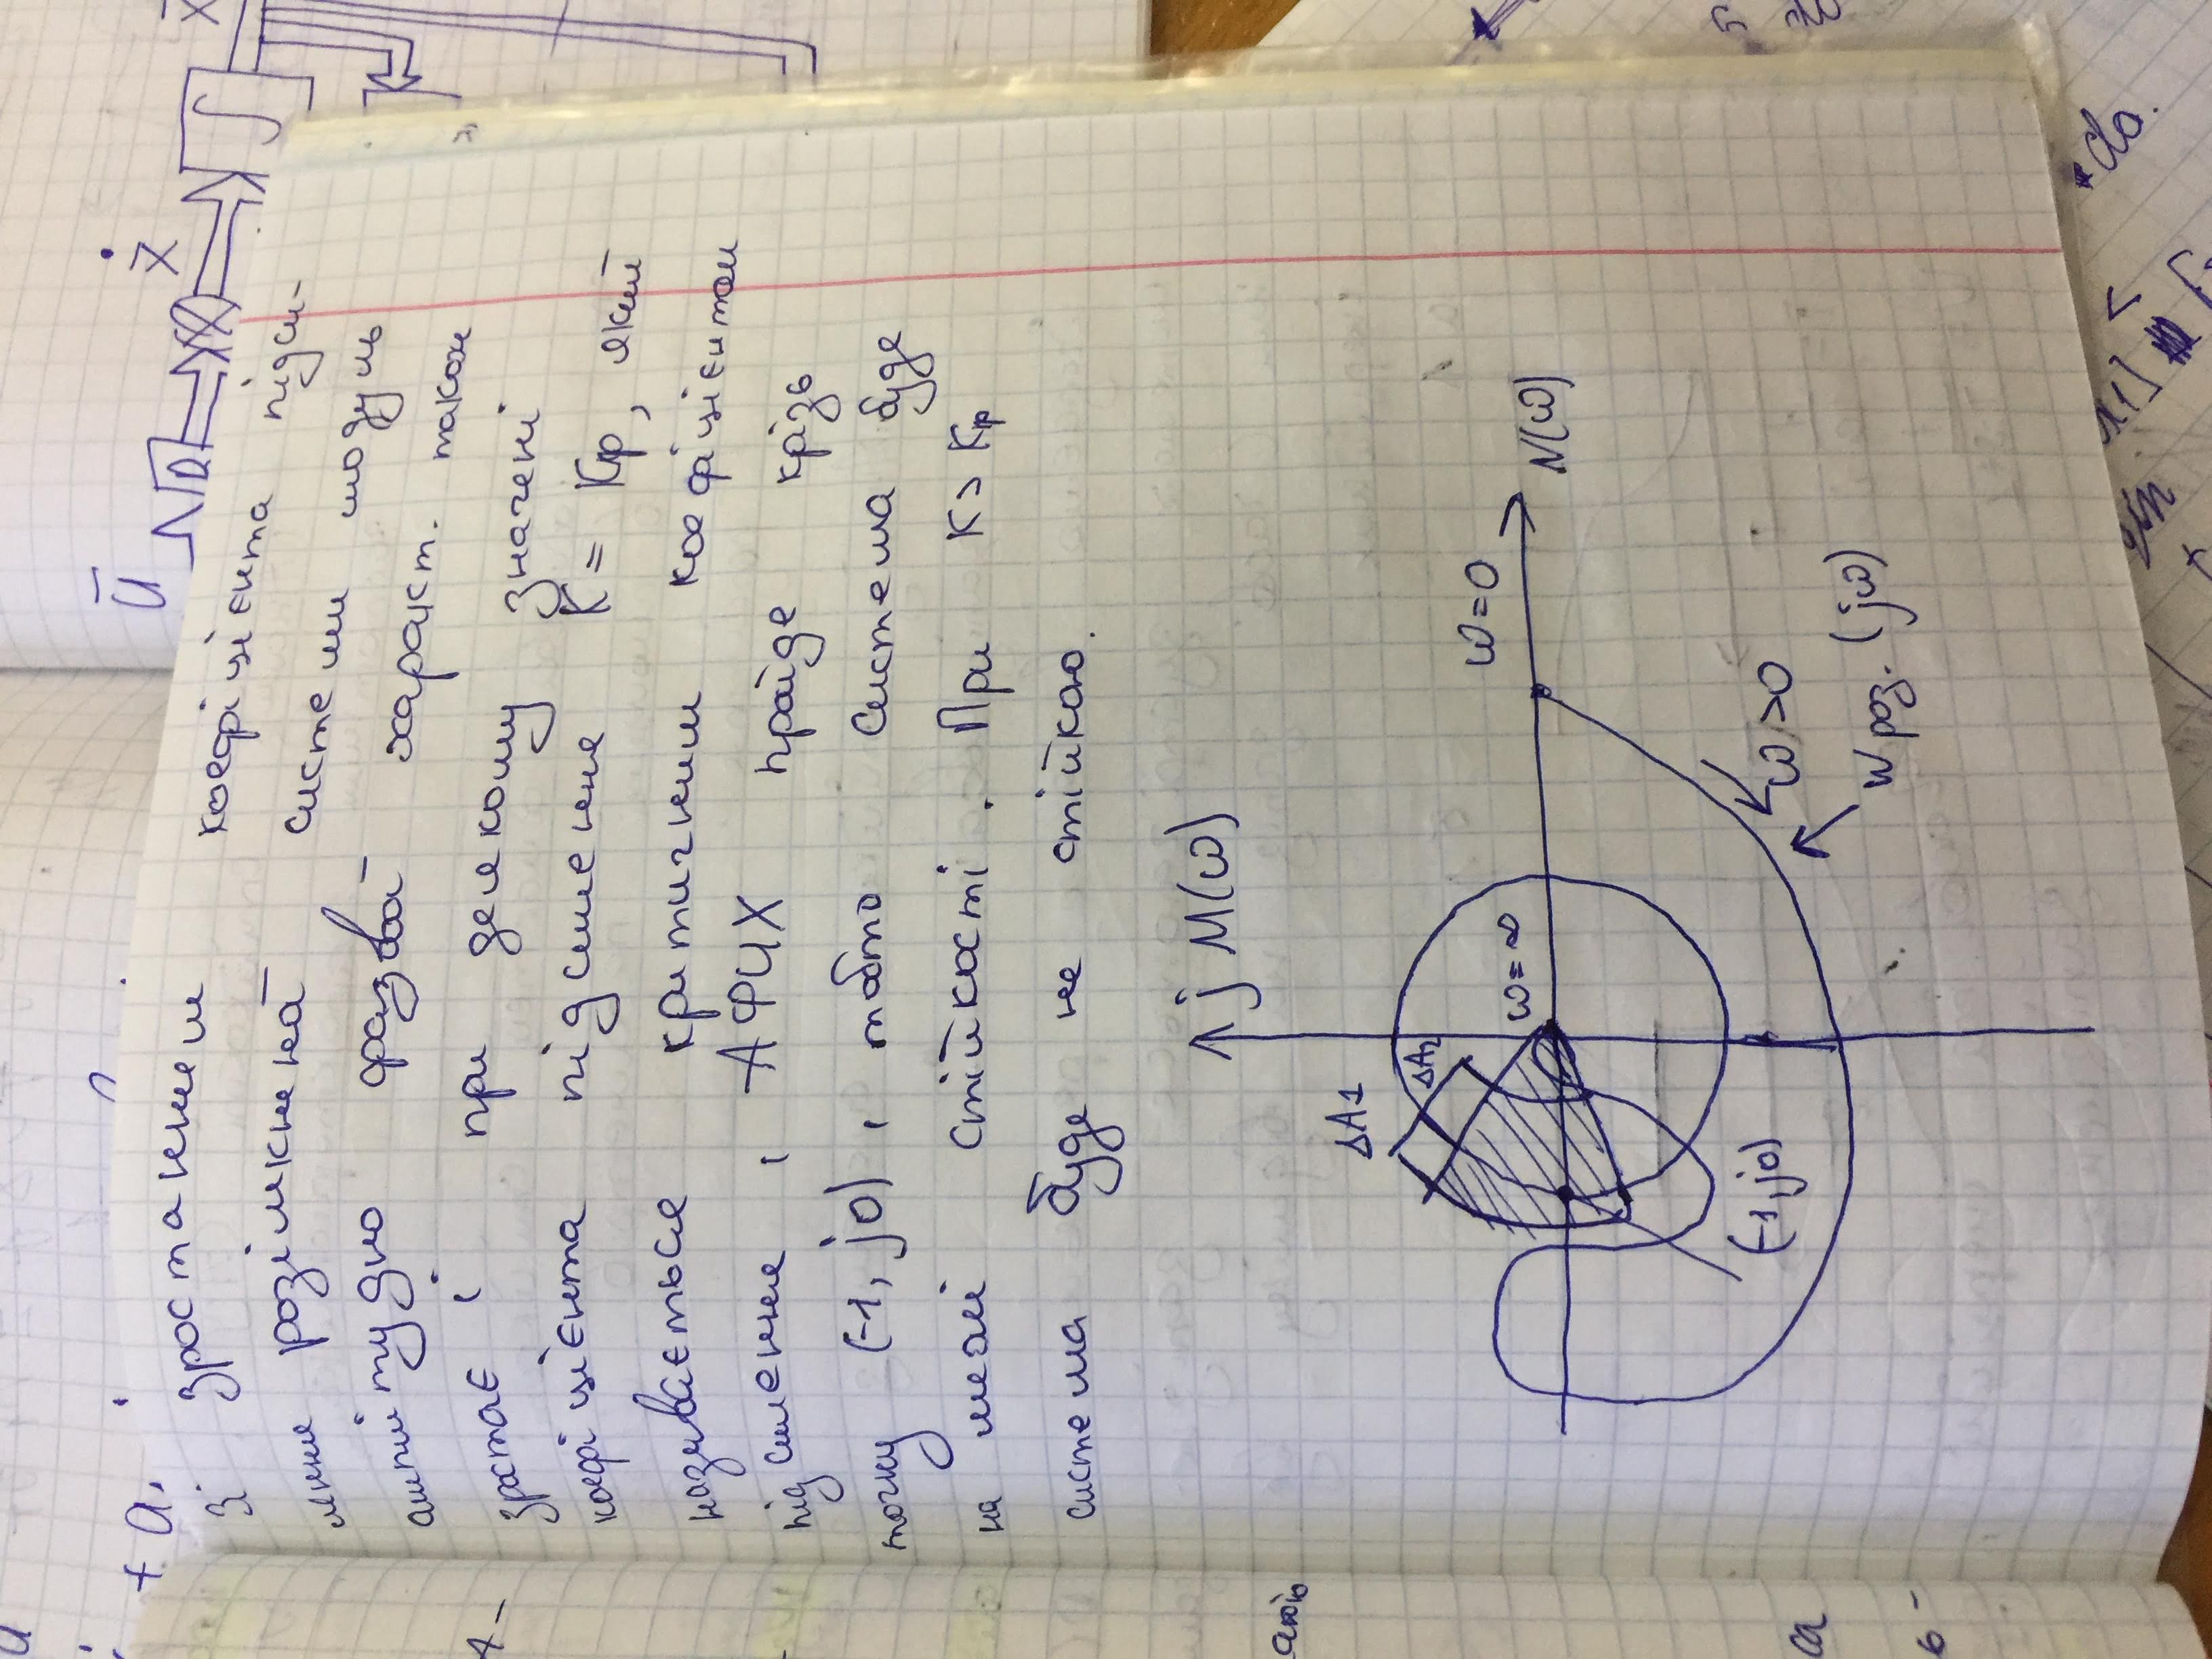 + a.
U̅
Ẋ
X
∫
З зростанням коефіцієнта підси-
лення розімкненої системи модуль
амплітудно фазової характ. також
зростає і при деякому значені
коефіцієнта підсилення K = Kкр, який
називається критичним коефіцієнтом
підсилення, АФЧХ пройде крізь
точку (-1, j0), тобто система буде
на межі стійкості. При K > Kкр
система буде не стійкою.
j M(ω)
ΔA1
ΔA2
ω=∞
ω=0
N(ω)
(-1, j0)
ω>0
Wроз. (jω)
са